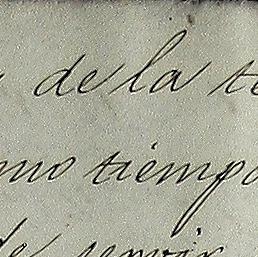 de la te
mo tiempo
de servir